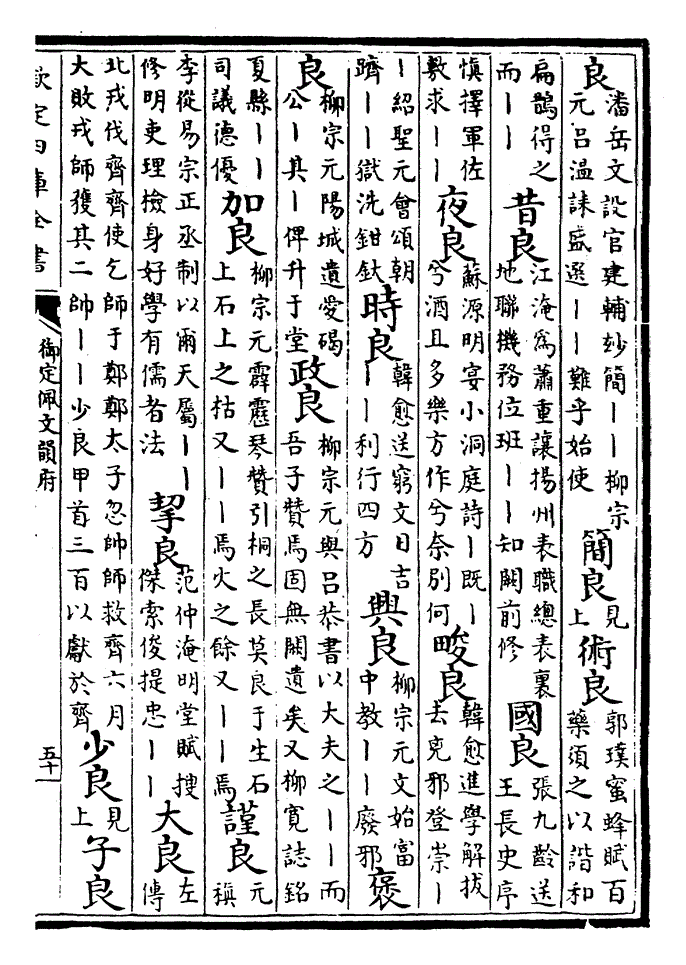 良潘岳文設官建輔妙簡丨丨柳宗元呂溫誄盛選丨丨難乎始使簡良見上術良郭璞蜜蜂賦百藥須之以諧和
扁鵲得之而丨丨昔良江淹為蕭重讓揚州表職總表裏地聯機務位班丨丨知闕前修國良張九齡送王長史序
慎擇軍佐敷求丨丨夜良蘇源明宴小洞庭詩丨既丨兮酒且多樂方作兮奈別何畯良韓愈進學解拔去兇邪登崇丨
丨紹聖元會頌朝躋丨丨獄洗鉗釱時良韓愈送窮文日吉丨丨利行四方興良柳宗元文始富中教丨丨廢邪褒
良柳宗元陽城遺愛碣公丨其丨俾升于堂政良柳宗元與呂恭書以大夫之丨丨而吾子贊焉固無闕遺矣又柳寬誌銘
夏縣丨丨司議德優加良柳宗元霹靂琴贊引桐之長莫良于生石上石上之枯又丨丨焉火之餘又丨丨焉謹良元稹
李從易宗正丞制以爾天屬丨丨修明吏理檢身好學有儒者法挈良范仲淹明堂賦搜傑索俊提忠丨丨大良左傳
北戎伐齊齊使乞師于鄭鄭太子忽帥師救齊六月大敗戎師獲其二帥丨丨少良甲首三百以獻於齊少良見上子良
欽定四庫全書
御定佩文韻府
五十一